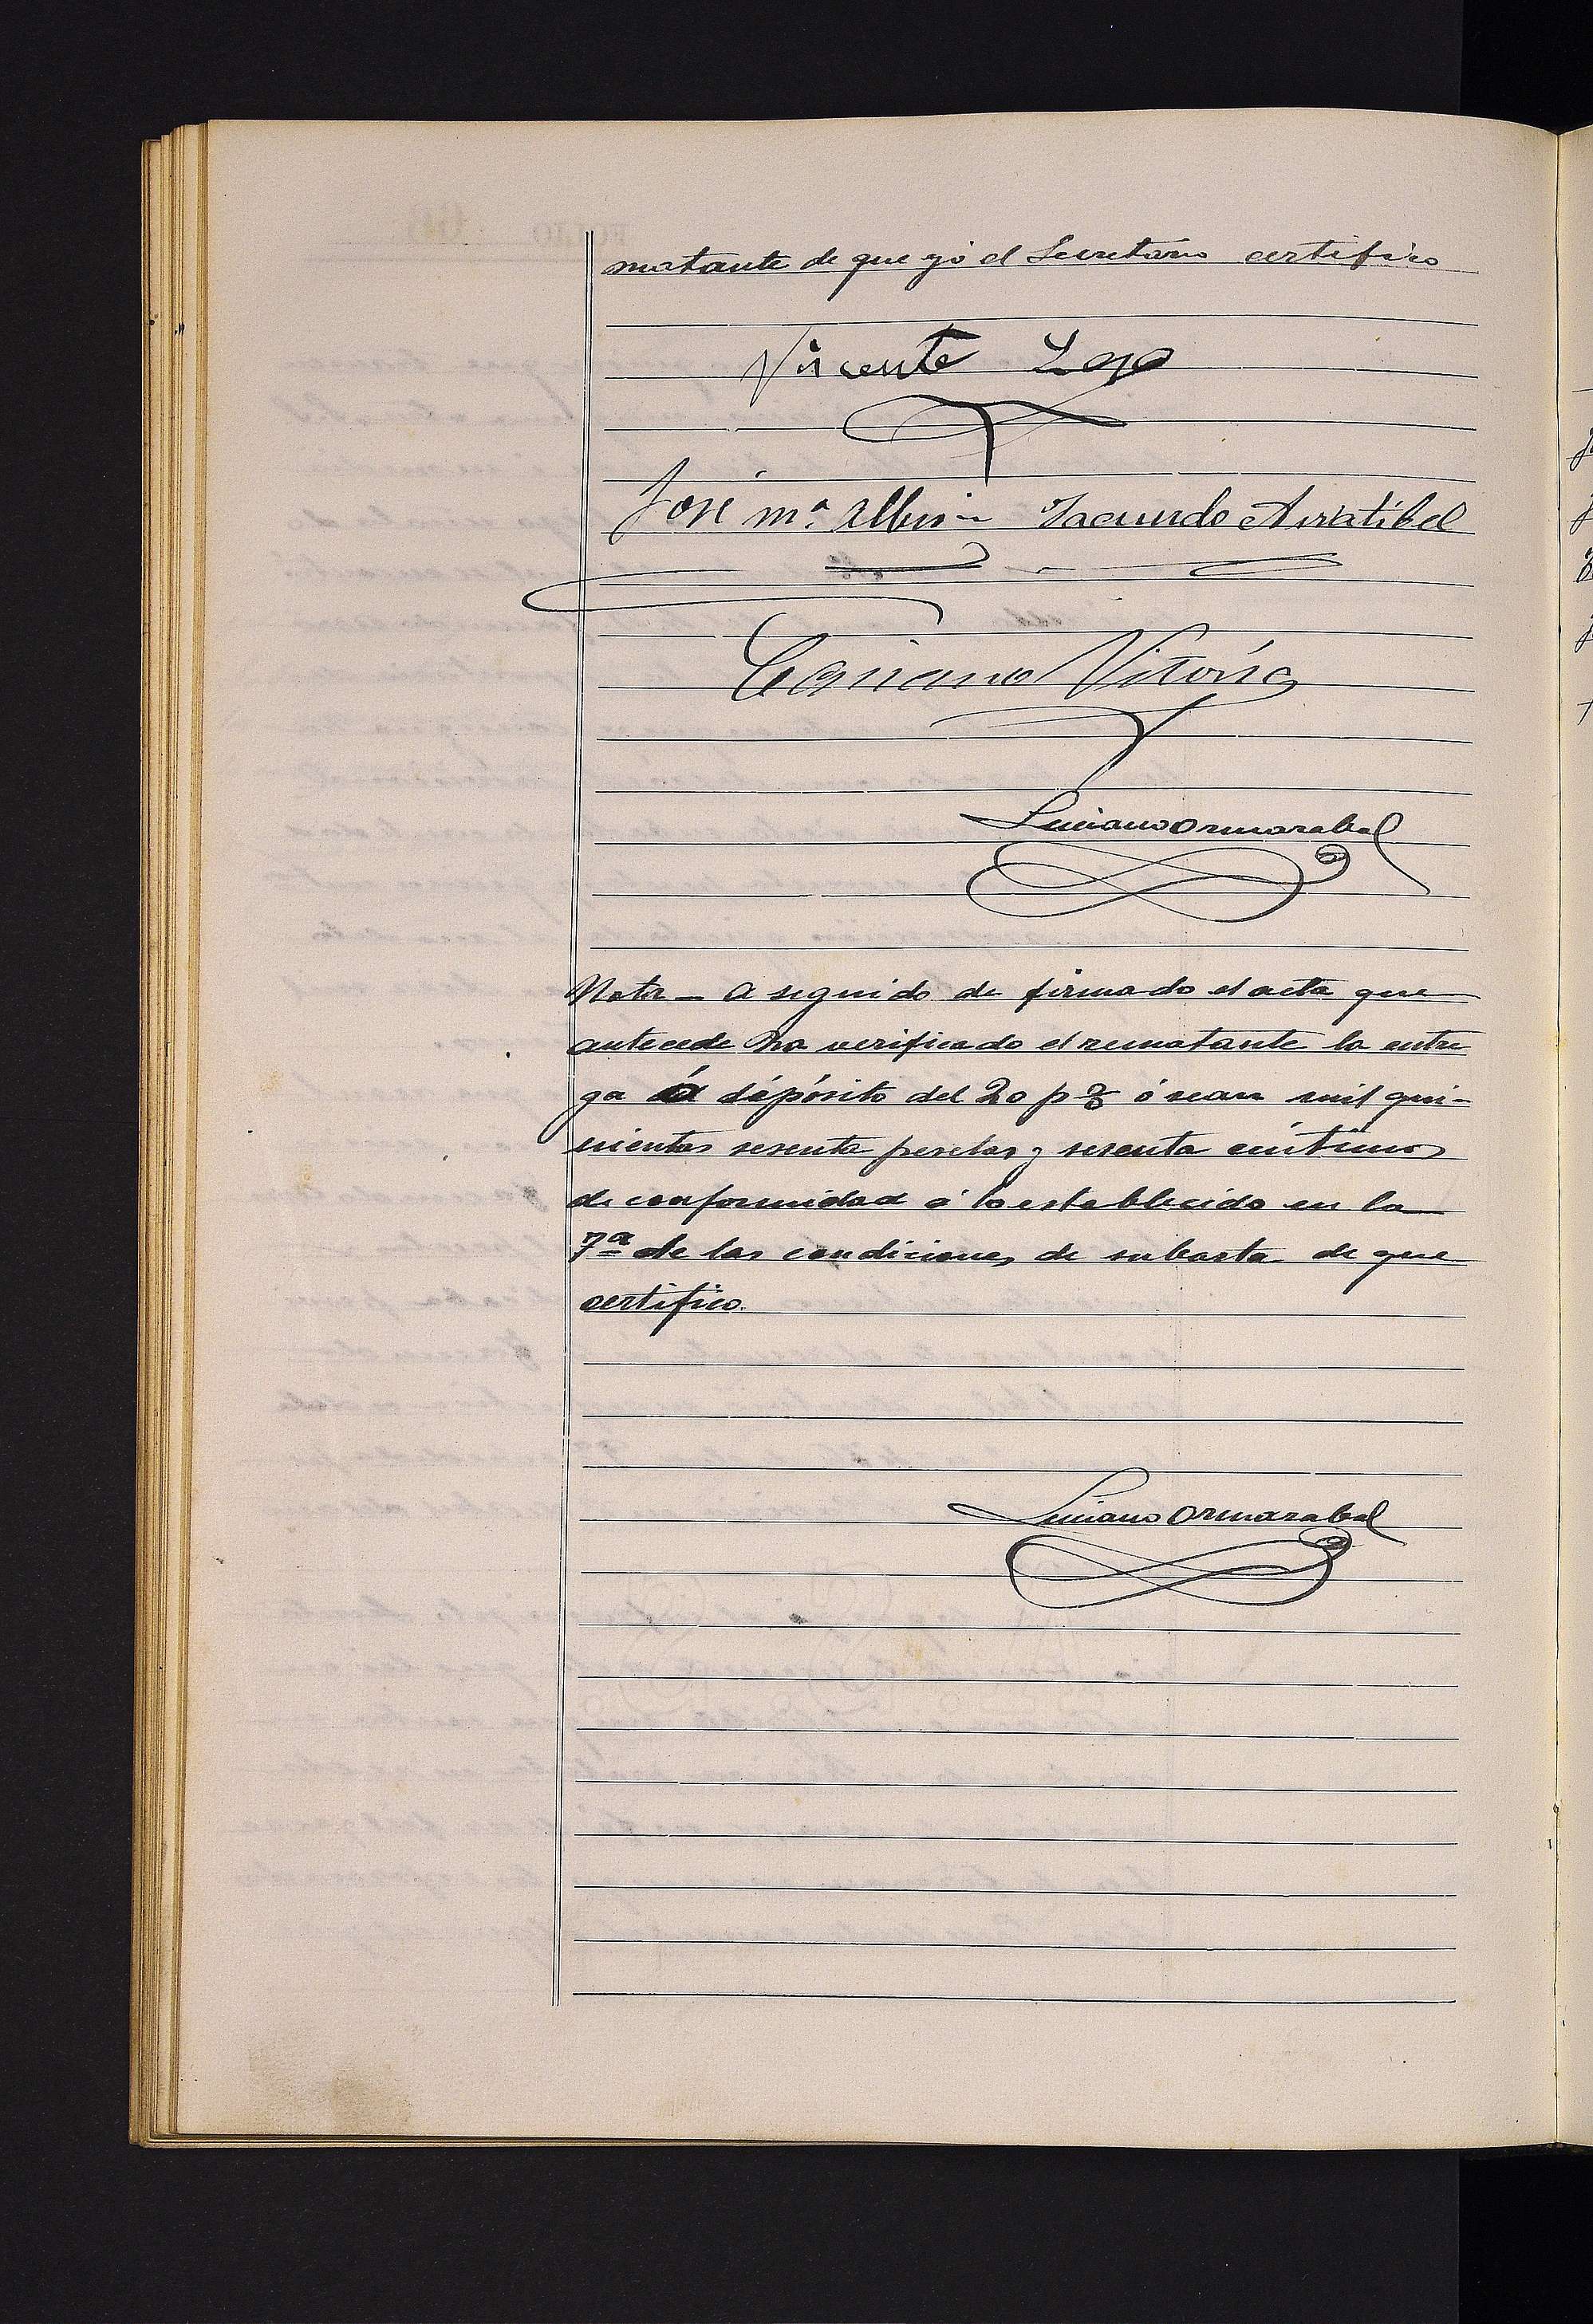 matante de que yó el Secretario certifico
Vicente Loyo
José Mª Albisu Facundo Arratibel
Cipriano Vitoria
Luciano Ormazabal
Nota — A seguido de firmado el acta que
antecede ha verificado el rematante la entre
ga á dépósito del 20 p % ó sean mil qui-
nientas sesenta pesetas y sesenta céntimos
de conformidad á lo establecido en la
7ª de las condiciones de subasta de que
certifico.
Luciano Ormazabal